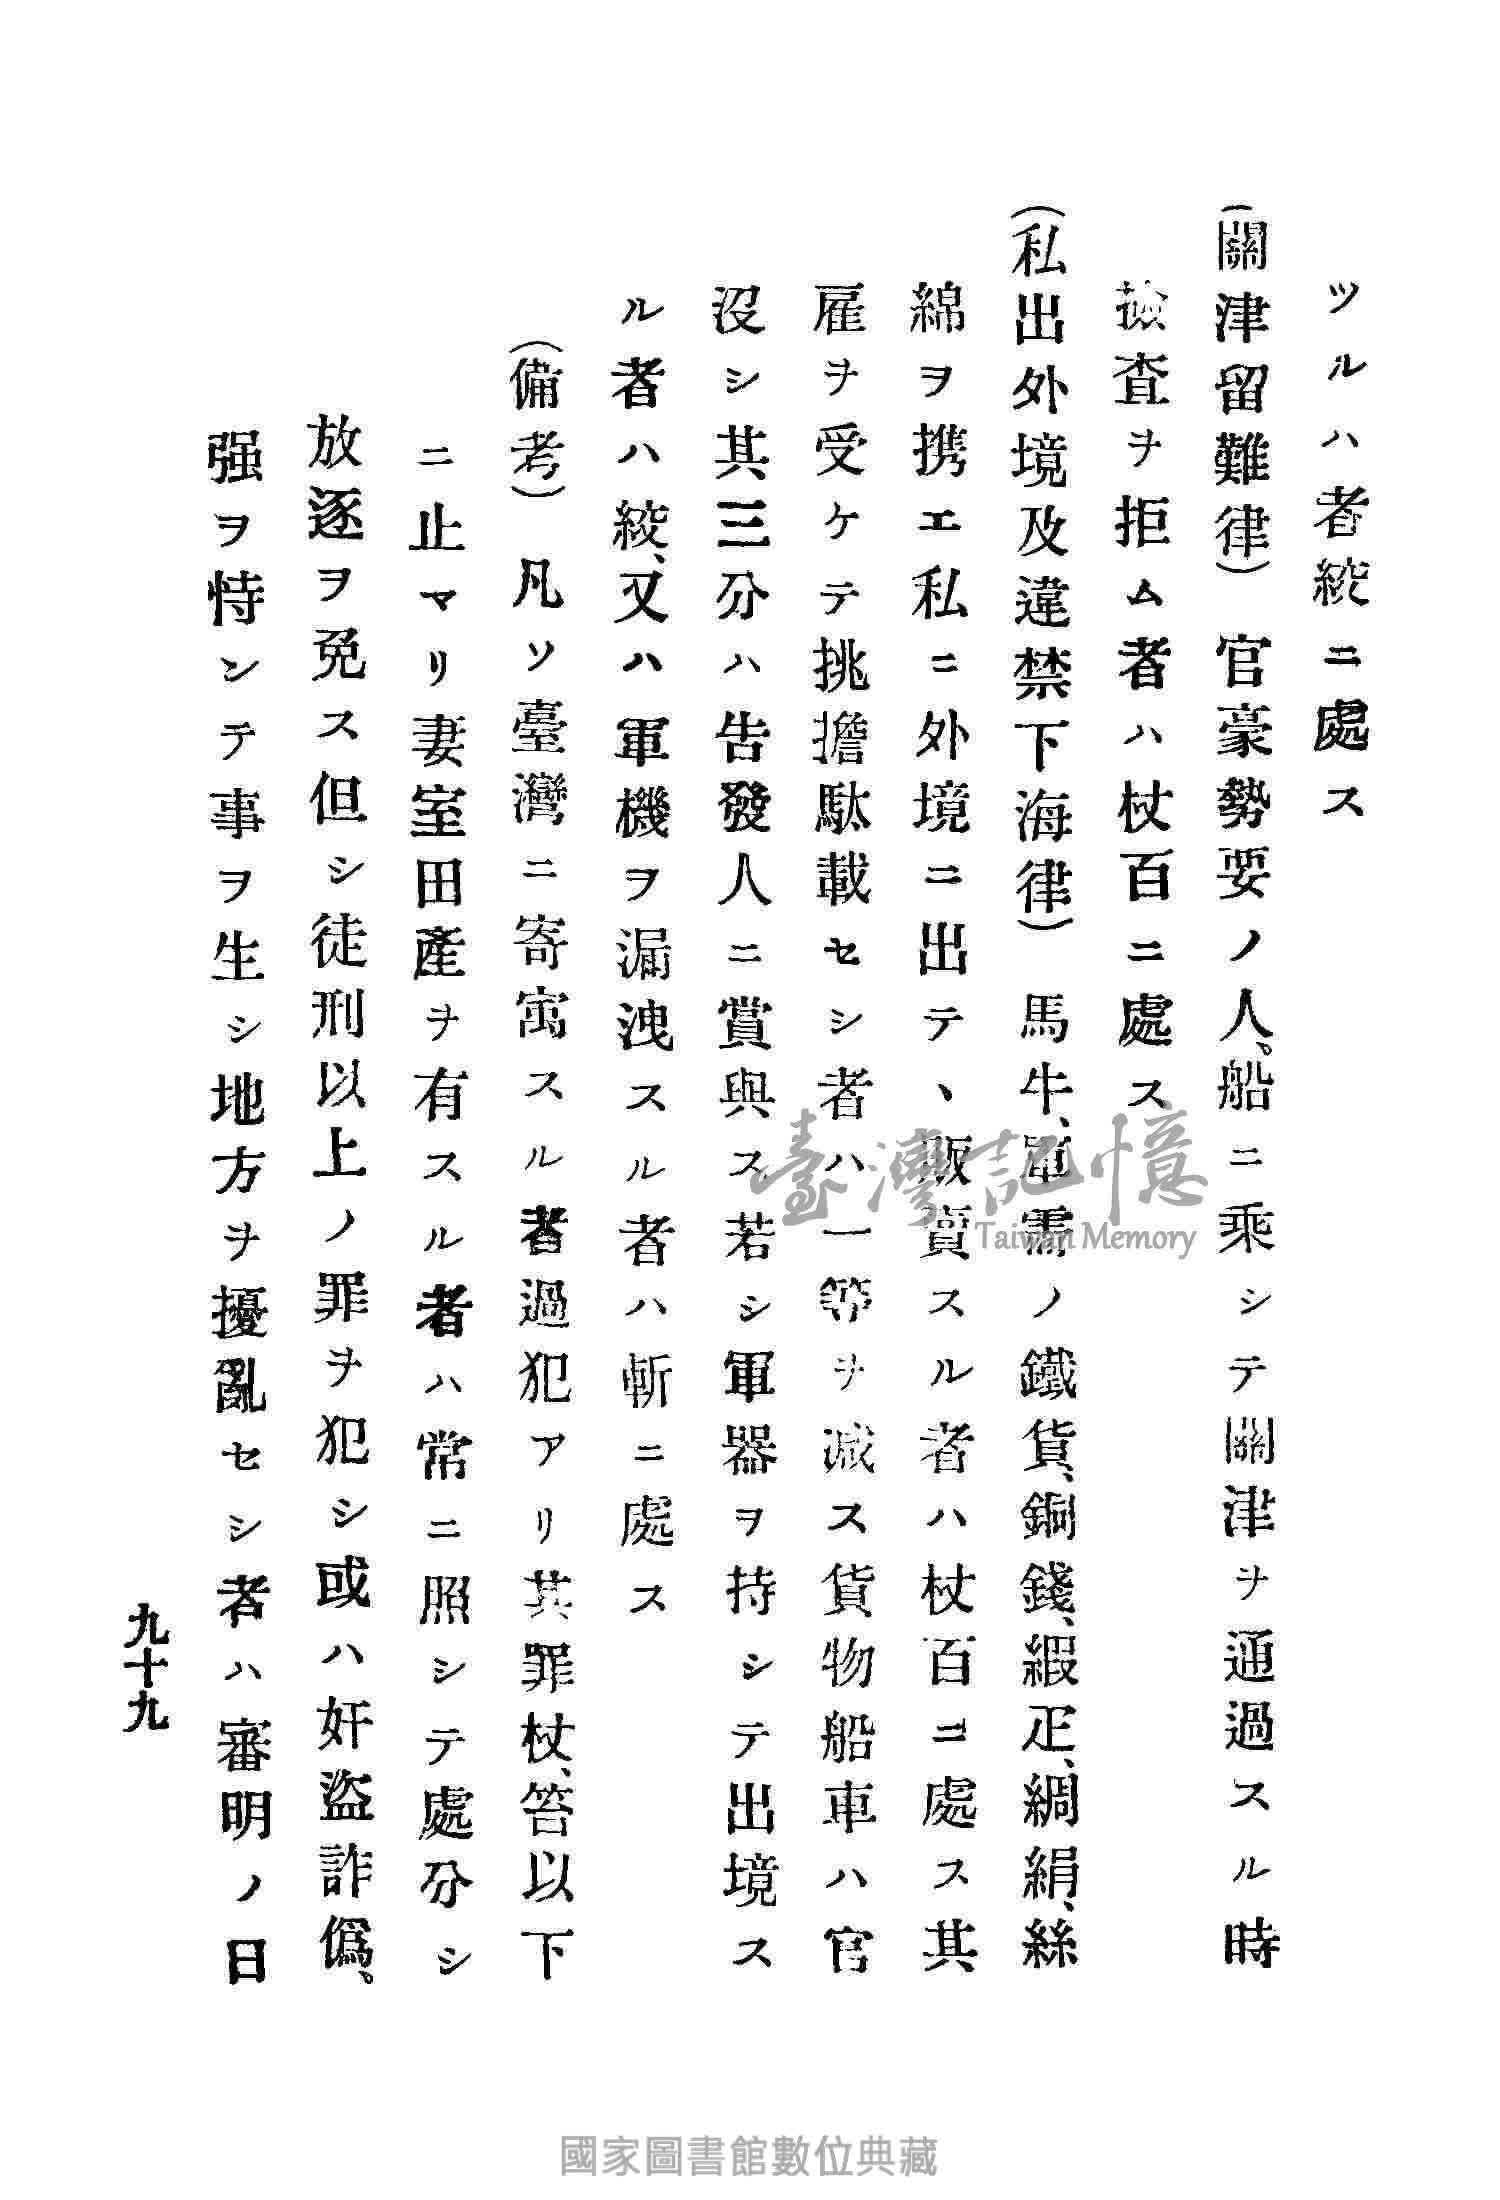 ツルハ者絞ニ處ス
(關津留難律) 官豪勢要ノ人。船ニ乘シテ關津ヲ通過スル時
撿査ヲ拒ム者ハ杖百ニ處ス
(私出外境及違禁下海律) 馬牛、軍需ノ鐵貨、銅錢、緞疋、綢絹、絲
綿ヲ携エ私ニ外境ニ出テ、販賣スル者ハ杖百ニ處ス其
雇ヲ受ケテ挑擔馱載セシ者ハ一等ヲ减ス貨物船車ハ官
沒シ其三分ハ告發人ニ賞與ス若シ軍器ヲ持シテ出境ス
ル者ハ絞、又ハ軍機ヲ漏洩スル者ハ斬ニ處ス
(備考) 凡ソ臺灣ニ寄寓スル者過犯アリ其罪杖、笞以下
ニ止マリ妻室田產ヲ有スル者ハ常ニ照シテ處分シ
放逐ヲ免ス但シ徒刑以上ノ罪ヲ犯シ或ハ奸盜詐僞。
强ヲ恃ンテ事ヲ生シ地方ヲ擾亂セシ者ハ審明ノ日
九十九
臺灣記憶
Taiwan Memory
國家圖書館數位典藏